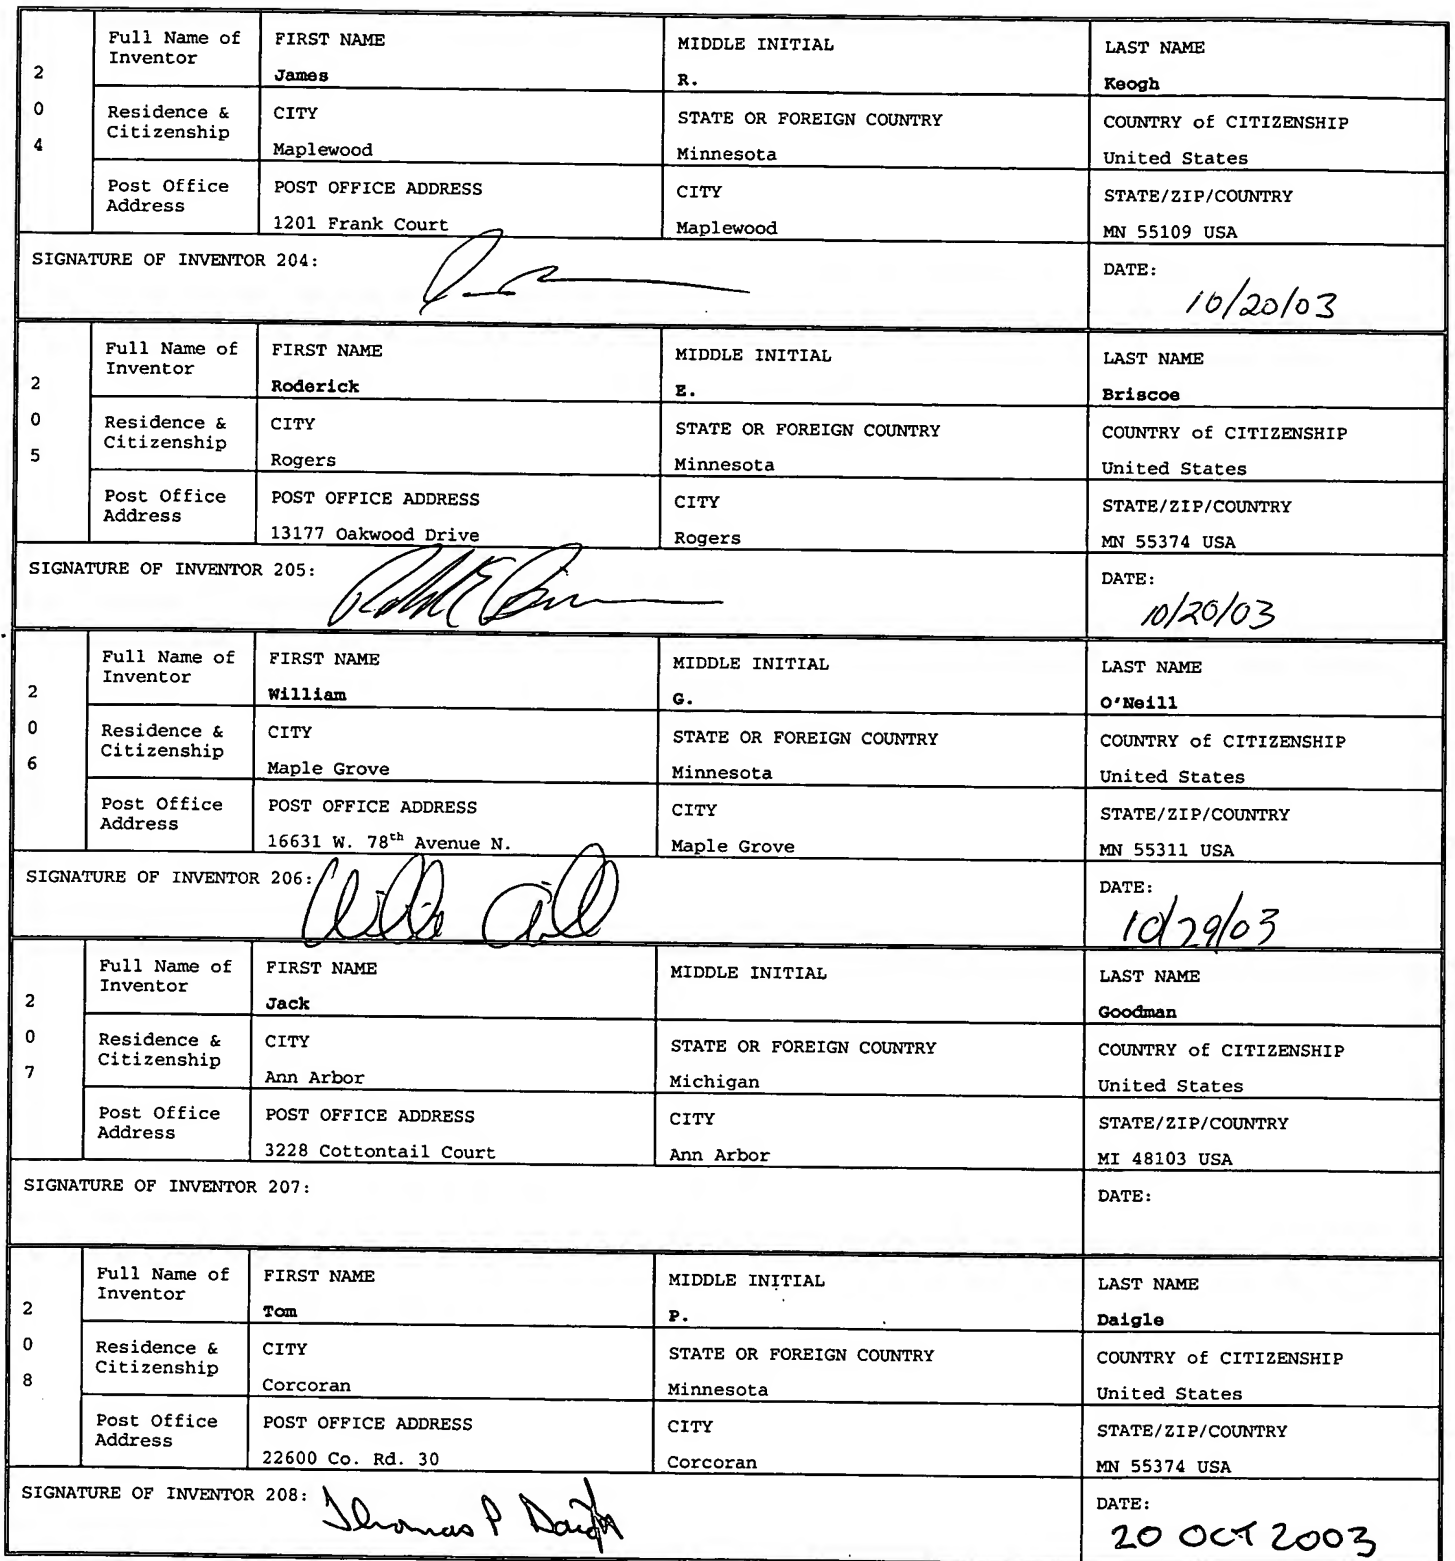 2 0 4
Full Name of Inventor
FIRST NAME
James
MIDDLE INITIAL
R.
LAST NAME
Keogh
Residence & Citizenship
CITY
Maplewood
STATE OR FOREIGN COUNTRY
Minnesota
COUNTRY of CITIZENSHIP
United States
Post Office Address
POST OFFICE ADDRESS
1201 Frank Court
CITY
Maplewood
STATE/ZIP/COUNTRY
MN 55109 USA
SIGNATURE OF INVENTOR 204:
DATE:
10/20/03
2 0 5
Full Name of Inventor
FIRST NAME
Roderick
MIDDLE INITIAL
E.
LAST NAME
Briscoe
Residence & Citizenship
CITY
Rogers
STATE OR FOREIGN COUNTRY
Minnesota
COUNTRY of CITIZENSHIP
United States
Post Office Address
POST OFFICE ADDRESS
13177 Oakwood Drive
CITY
Rogers
STATE/ZIP/COUNTRY
MN 55374 USA
SIGNATURE OF INVENTOR 205:
DATE:
10/20/03
2 0 6
Full Name of Inventor
FIRST NAME
William
MIDDLE INITIAL
G.
LAST NAME
O'Neill
Residence & Citizenship
CITY
Maple Grove
STATE OR FOREIGN COUNTRY
Minnesota
COUNTRY of CITIZENSHIP
United States
Post Office Address
POST OFFICE ADDRESS
16631 W. 78th Avenue N.
CITY
Maple Grove
STATE/ZIP/COUNTRY
MN 55311 USA
SIGNATURE OF INVENTOR 206:
DATE:
10/29/03
2 0 7
Full Name of Inventor
FIRST NAME
Jack
MIDDLE INITIAL
LAST NAME
Goodman
Residence & Citizenship
CITY
Ann Arbor
STATE OR FOREIGN COUNTRY
Michigan
COUNTRY of CITIZENSHIP
United States
Post Office Address
POST OFFICE ADDRESS
3228 Cottontail Court
CITY
Ann Arbor
STATE/ZIP/COUNTRY
MI 48103 USA
SIGNATURE OF INVENTOR 207:
DATE:
2 0 8
Full Name of Inventor
FIRST NAME
Tom
MIDDLE INITIAL
P.
LAST NAME
Daigle
Residence & Citizenship
CITY
Corcoran
STATE OR FOREIGN COUNTRY
Minnesota
COUNTRY of CITIZENSHIP
United States
Post Office Address
POST OFFICE ADDRESS
22600 Co. Rd. 30
CITY
Corcoran
STATE/ZIP/COUNTRY
MN 55374 USA
SIGNATURE OF INVENTOR 208: Thomas P Daigle
DATE:
20 OCT 2003